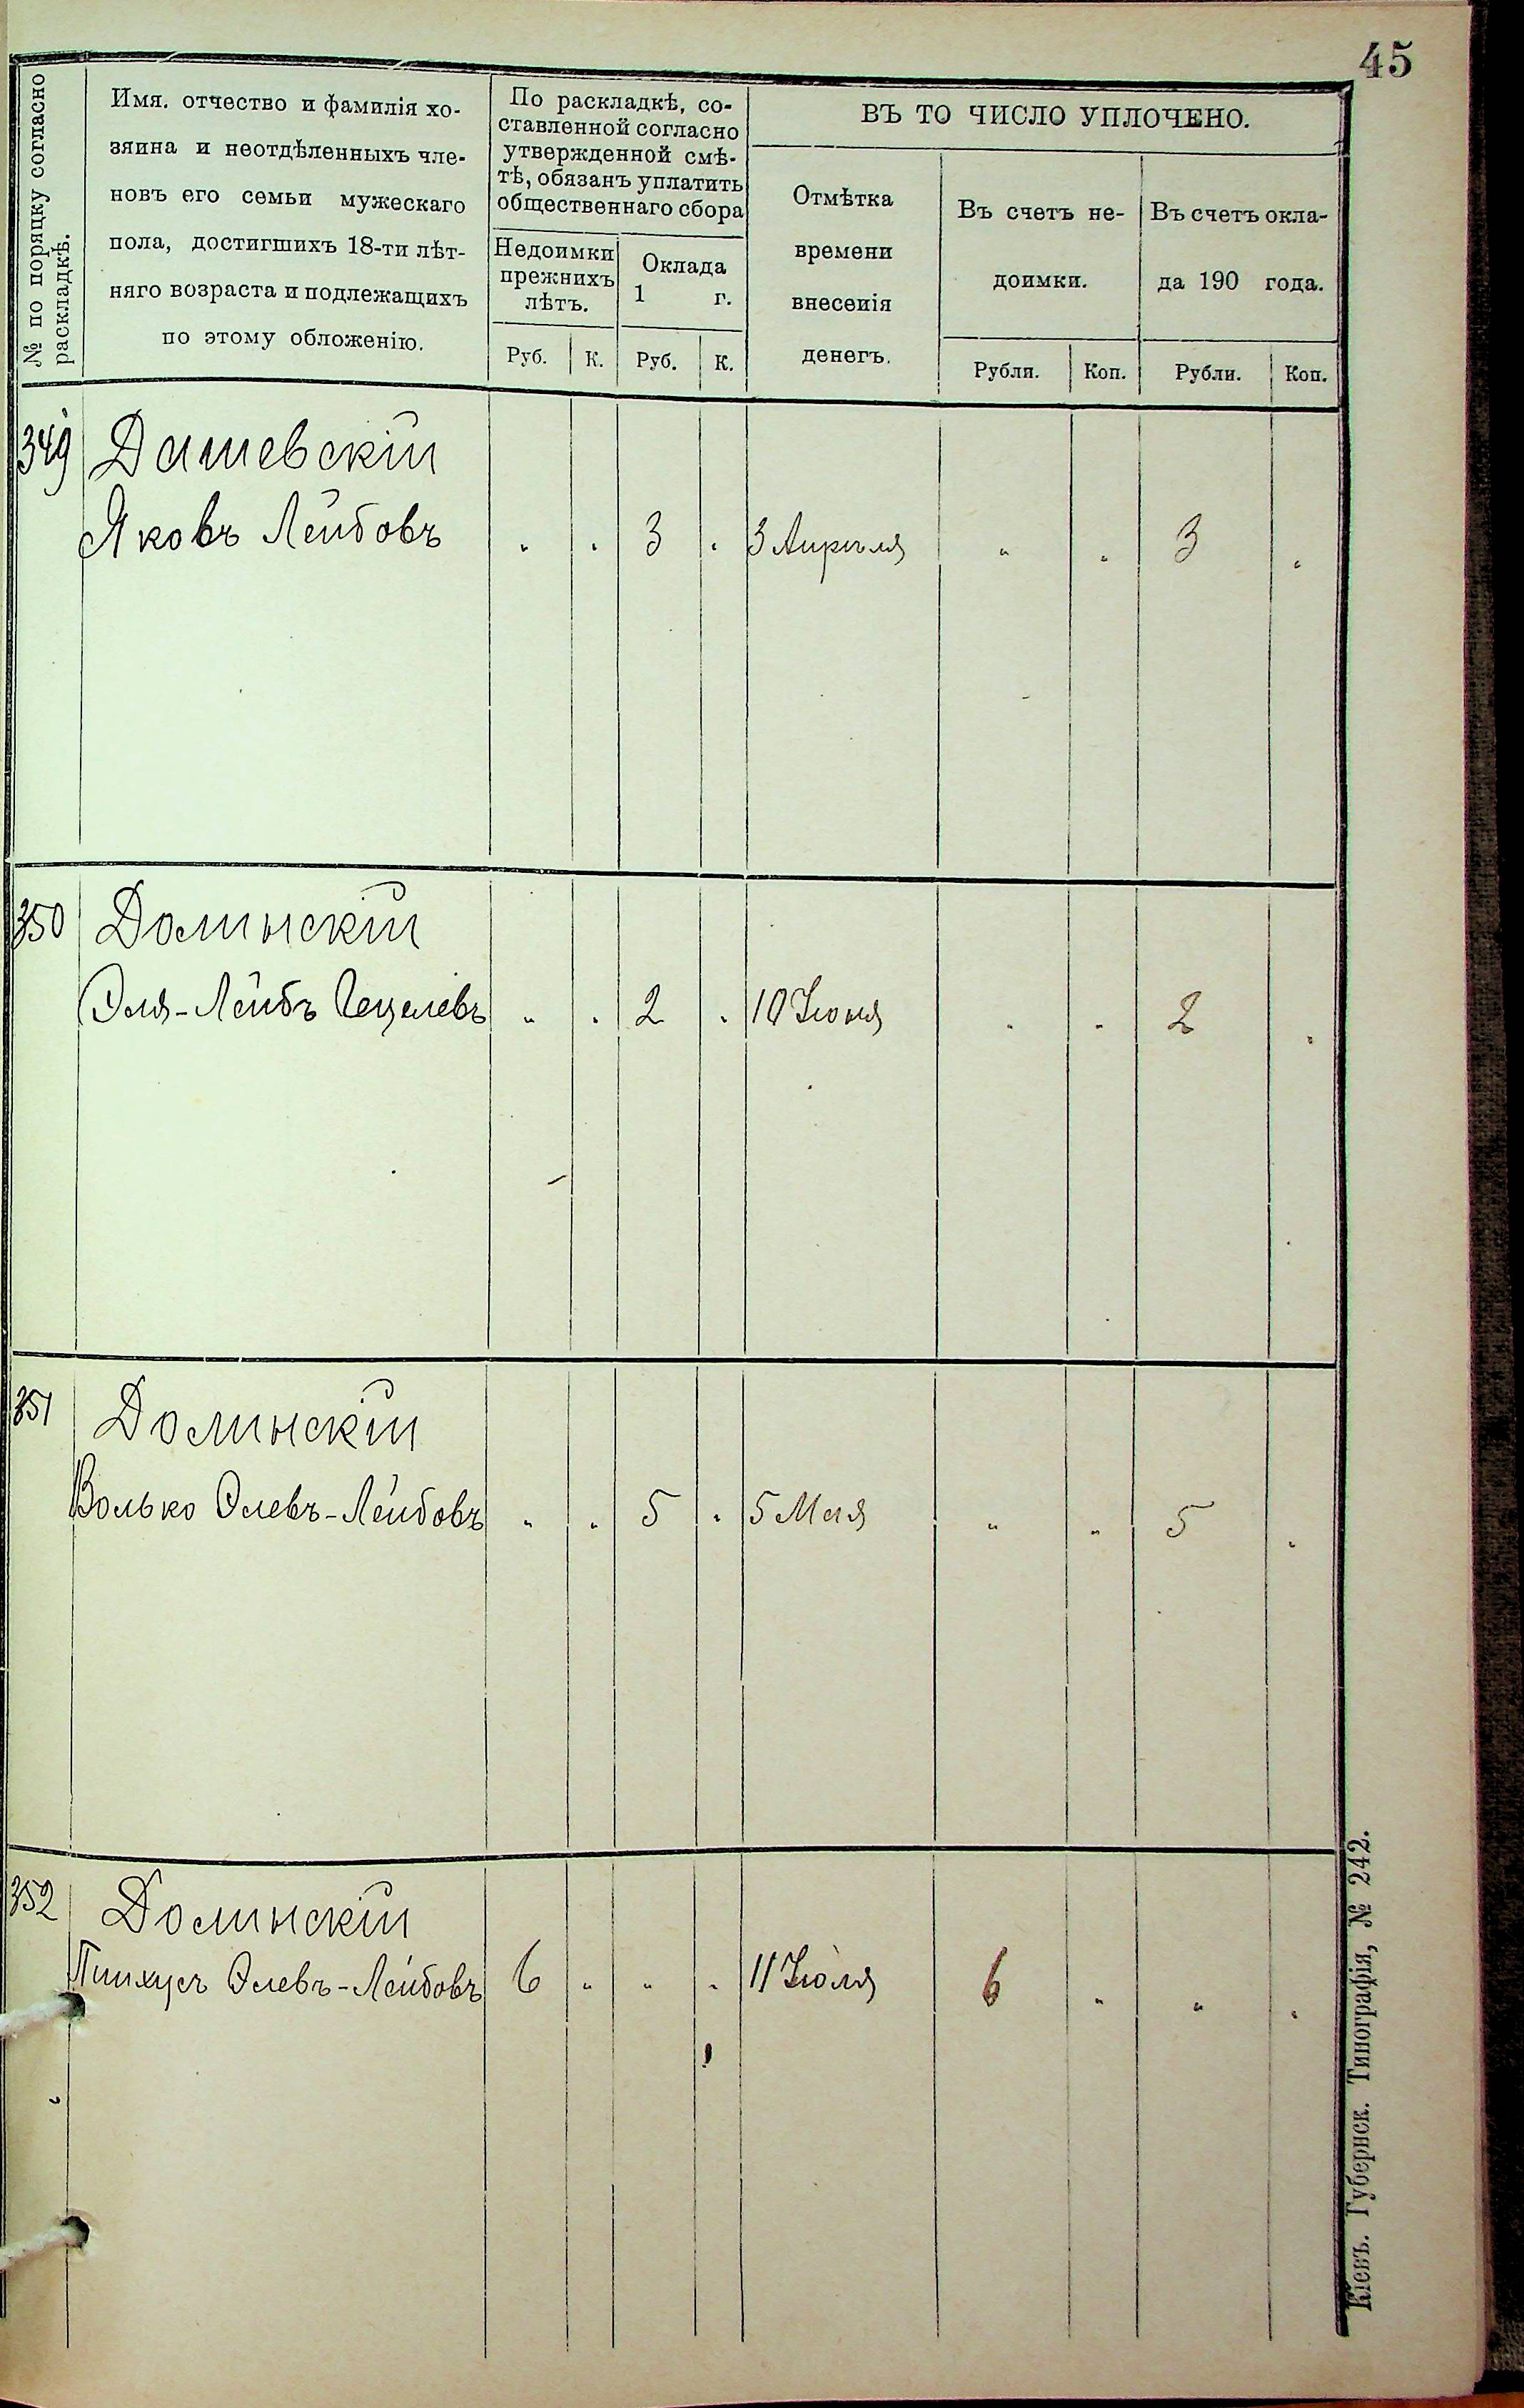 45
№ по поряцку согласно
раскладкѣ.
Имя. отчество и фамилія хо-
зяина и неотдѣленныхъ чле-
новъ его семьи мужескаго
пола, достигшихъ 18-ти лѣт-
няго возраста и подлежащихъ
по этому обложенію.
По раскладкѣ, со-
ставленной согласно
утвержденной смѣ-
тѣ, обязанъ уплатить
общественнаго сбора
Недоимки
прежнихъ
лѣтъ.
Оклада
1 г.
Руб. К. Руб. К.
ВЪ ТО ЧИСЛО УПЛОЧЕНО.
Отмѣтка
времени
внесенія
денегъ.
Въ счетъ не-
доимки.
Въ счетъ окла-
да 190 года.
Рубли. Коп. Рубли. Коп.
349 Дашевскій
Яковъ Лейбовъ " " 3 " 3 Апрѣля " " 3 "
350 Долинскій
Эля-Лейбъ Гецелевъ " " 2 " 10 Іюня " " 2 "
351 Долинскій
Волько Элевъ-Лейбовъ " " 5 " 5 Мая " " 5 "
352 Долинскій
Пинхусъ Элевъ-Лейбовъ 6 " " " 11 Іюля 6 " " "
Кіевъ. Губернск. Типографія, № 242.